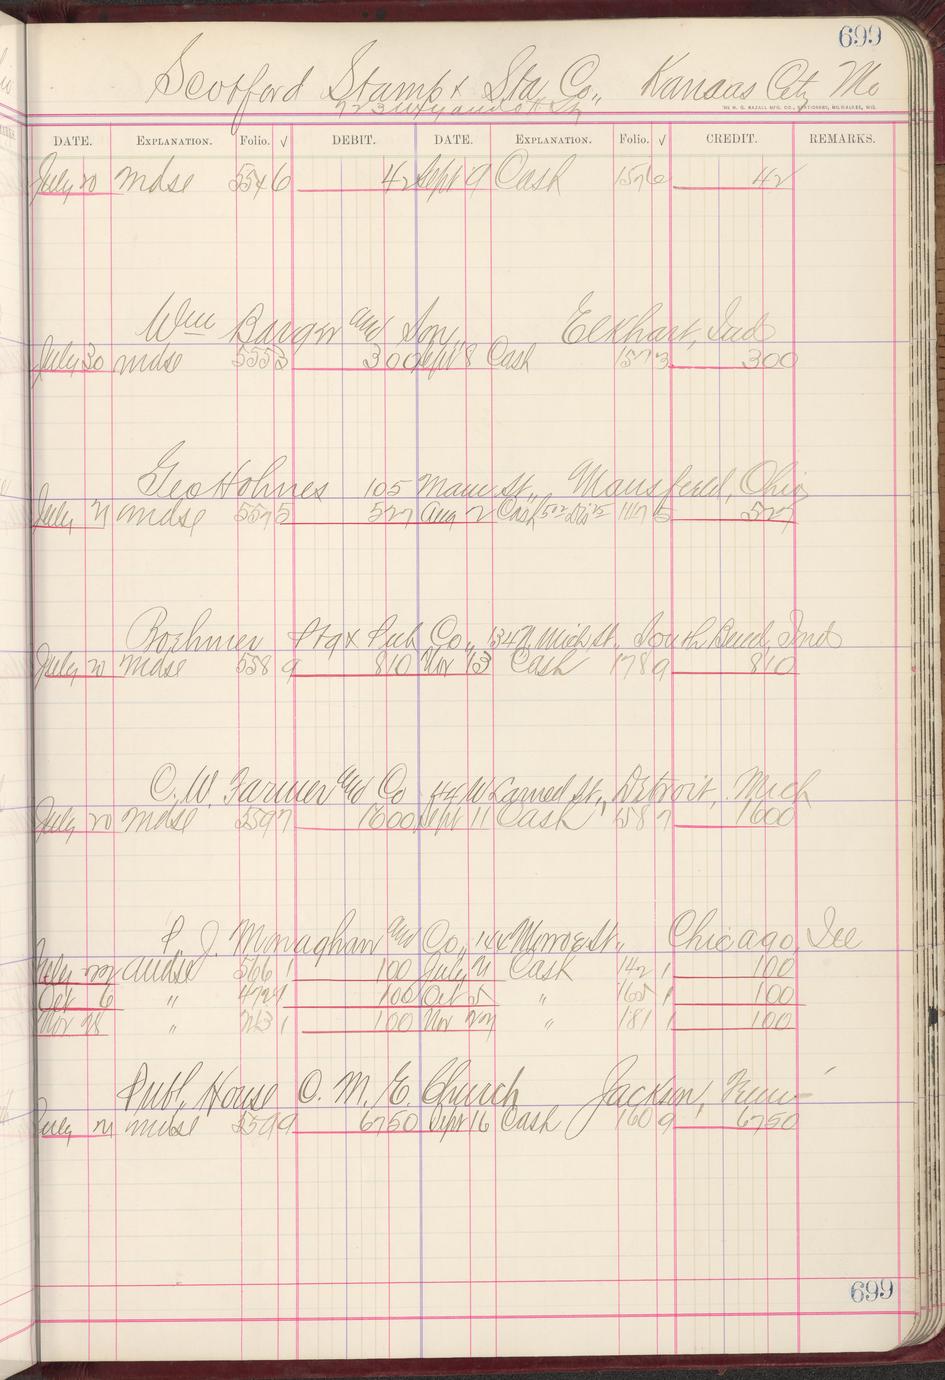 699
Scotford Stamp & Sta. Co., Kansas City Mo
723 Wyandott St
THE H. G. RAZALL MFG. CO., STATIONERS, MILWAUKEE, WIS.
DATE. EXPLANATION. Folio. √ DEBIT. DATE. EXPLANATION. Folio. √ CREDIT. REMARKS.
July 20 mdse 554 6 42 Sept 9 Cash 157 6 42
Wm Barger and Son Elkhart, Ind
July 30 mdse 555 3 300 Sept 8 Cash 157 3 300
Geo Hohnes 105 Main St., Mansfield, Ohio
July 21 mdse 557 5 527 Aug 2 Cash 117 5 527
Boehmer Ptg & Pub Co., 134 N Mich St. South Bend, Ind
July 20 mdse 558 9 810 Nov 13 Cash 178 9 810
C. W. Farmer and Co 44 W Larned St., Detroit, Mich
July 20 mdse 559 7 1600 Sept 11 Cash 158 7 1600
P. J. Monaghan and Co., 144 Monroe St., Chicago, Ill
July 22 mdse 566 1 100 July 21 Cash 142 1 100
Oct 6 " 472 1 100 Oct 5 " 165 1 100
Nov 28 " 763 1 100 Nov 27 " 181 1 100
Publ. House C. M. E. Church Jackson, Tenn
July 21 mdse 559 9 6750 Sept 16 Cash 160 9 6750
699